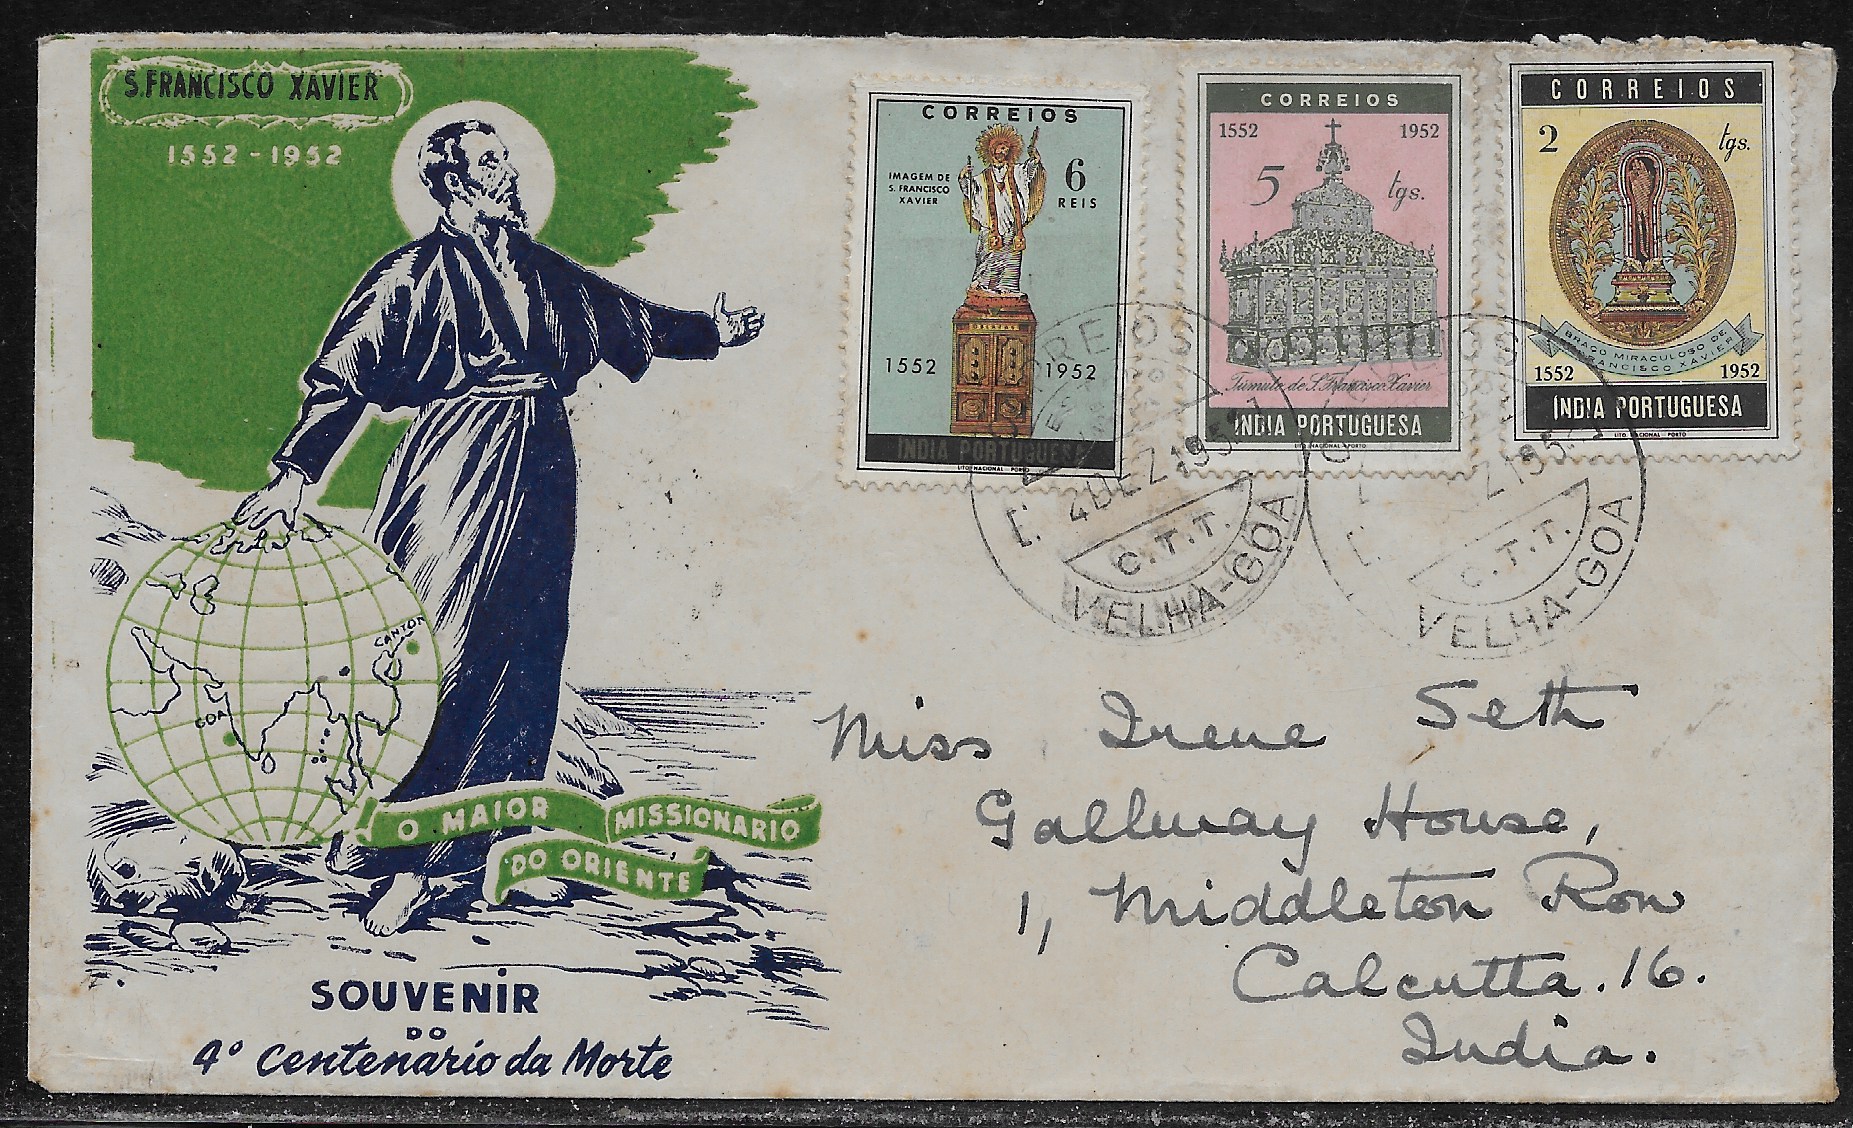 S. FRANCISCO XAVIER
1552 - 1952
CANTON
GOA
O MAIOR MISSIONARIO
DO ORIENTE
SOUVENIR
DO
4º Centenário da Morte
CORREIOS
IMAGEM DE
S. FRANCISCO
XAVIER
6
REIS
1552 1952
INDIA PORTUGUESA
LITO. NACIONAL PORTO
CORREIOS
1552 1952
5 tgs.
Túmulo de S. Francisco Xavier
ÍNDIA PORTUGUESA
LITO. NACIONAL-PORTO
CORREIOS
2 tgs.
BRAÇO MIRACULOSO DE
FRANCISCO XAVIER
1552 1952
ÍNDIA PORTUGUESA
LITO. NACIONAL PORTO
CORREIOS
DEZ 195
C.T.T.
VELHA-GOA
Z 195
C.T.T.
VELHA-GOA
Miss Irene Seth
Gallway House,
1, Middleton Row
Calcutta. 16.
India.